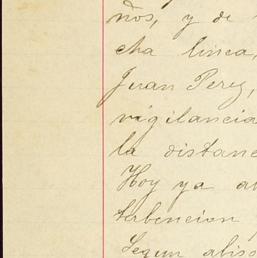 ños, y de
cha linea,
Juan Perez,
vigilancia
la distanc
Hoy ya a
terbencion
Segun abiso